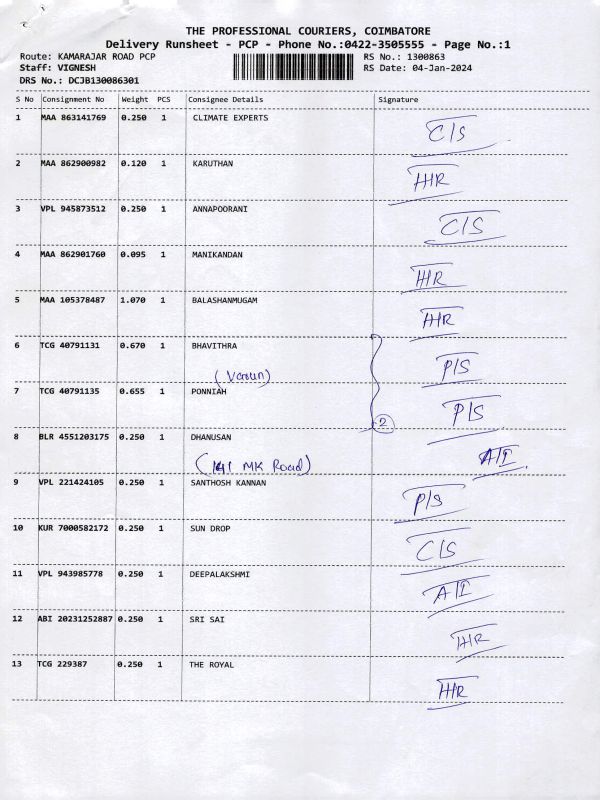 THE PROFESSIONAL COURIERS, COIMBATORE
Delivery Runsheet - PCP - Phone No.:0422-3505555 - Page No.:1
Route: KAMARAJAR ROAD PCP RS No.: 1300863
Staff: VIGNESH RS Date: 04-Jan-2024
DRS No.: DCJB130086301
S No Consignment No Weight PCS Consignee Details Signature
1 MAA 863141769 0.250 1 CLIMATE EXPERTS C/S
2 MAA 862900982 0.120 1 KARUTHAN H/R
3 VPL 945873512 0.250 1 ANNAPOORANI C/S
4 MAA 862901760 0.095 1 MANIKANDAN H/R
5 MAA 105378487 1.070 1 BALASHANMUGAM H/R
6 TCG 40791131 0.670 1 BHAVITHRA P/S
(Varun)
7 TCG 40791135 0.655 1 PONNIAH P/S
2
8 BLR 4551203175 0.250 1 DHANUSAN A/I
(141 MK Road)
9 VPL 221424105 0.250 1 SANTHOSH KANNAN P/S
10 KUR 7000582172 0.250 1 SUN DROP C/S
11 VPL 943985778 0.250 1 DEEPALAKSHMI A/I
12 ABI 20231252887 0.250 1 SRI SAI H/R
13 TCG 229387 0.250 1 THE ROYAL H/R